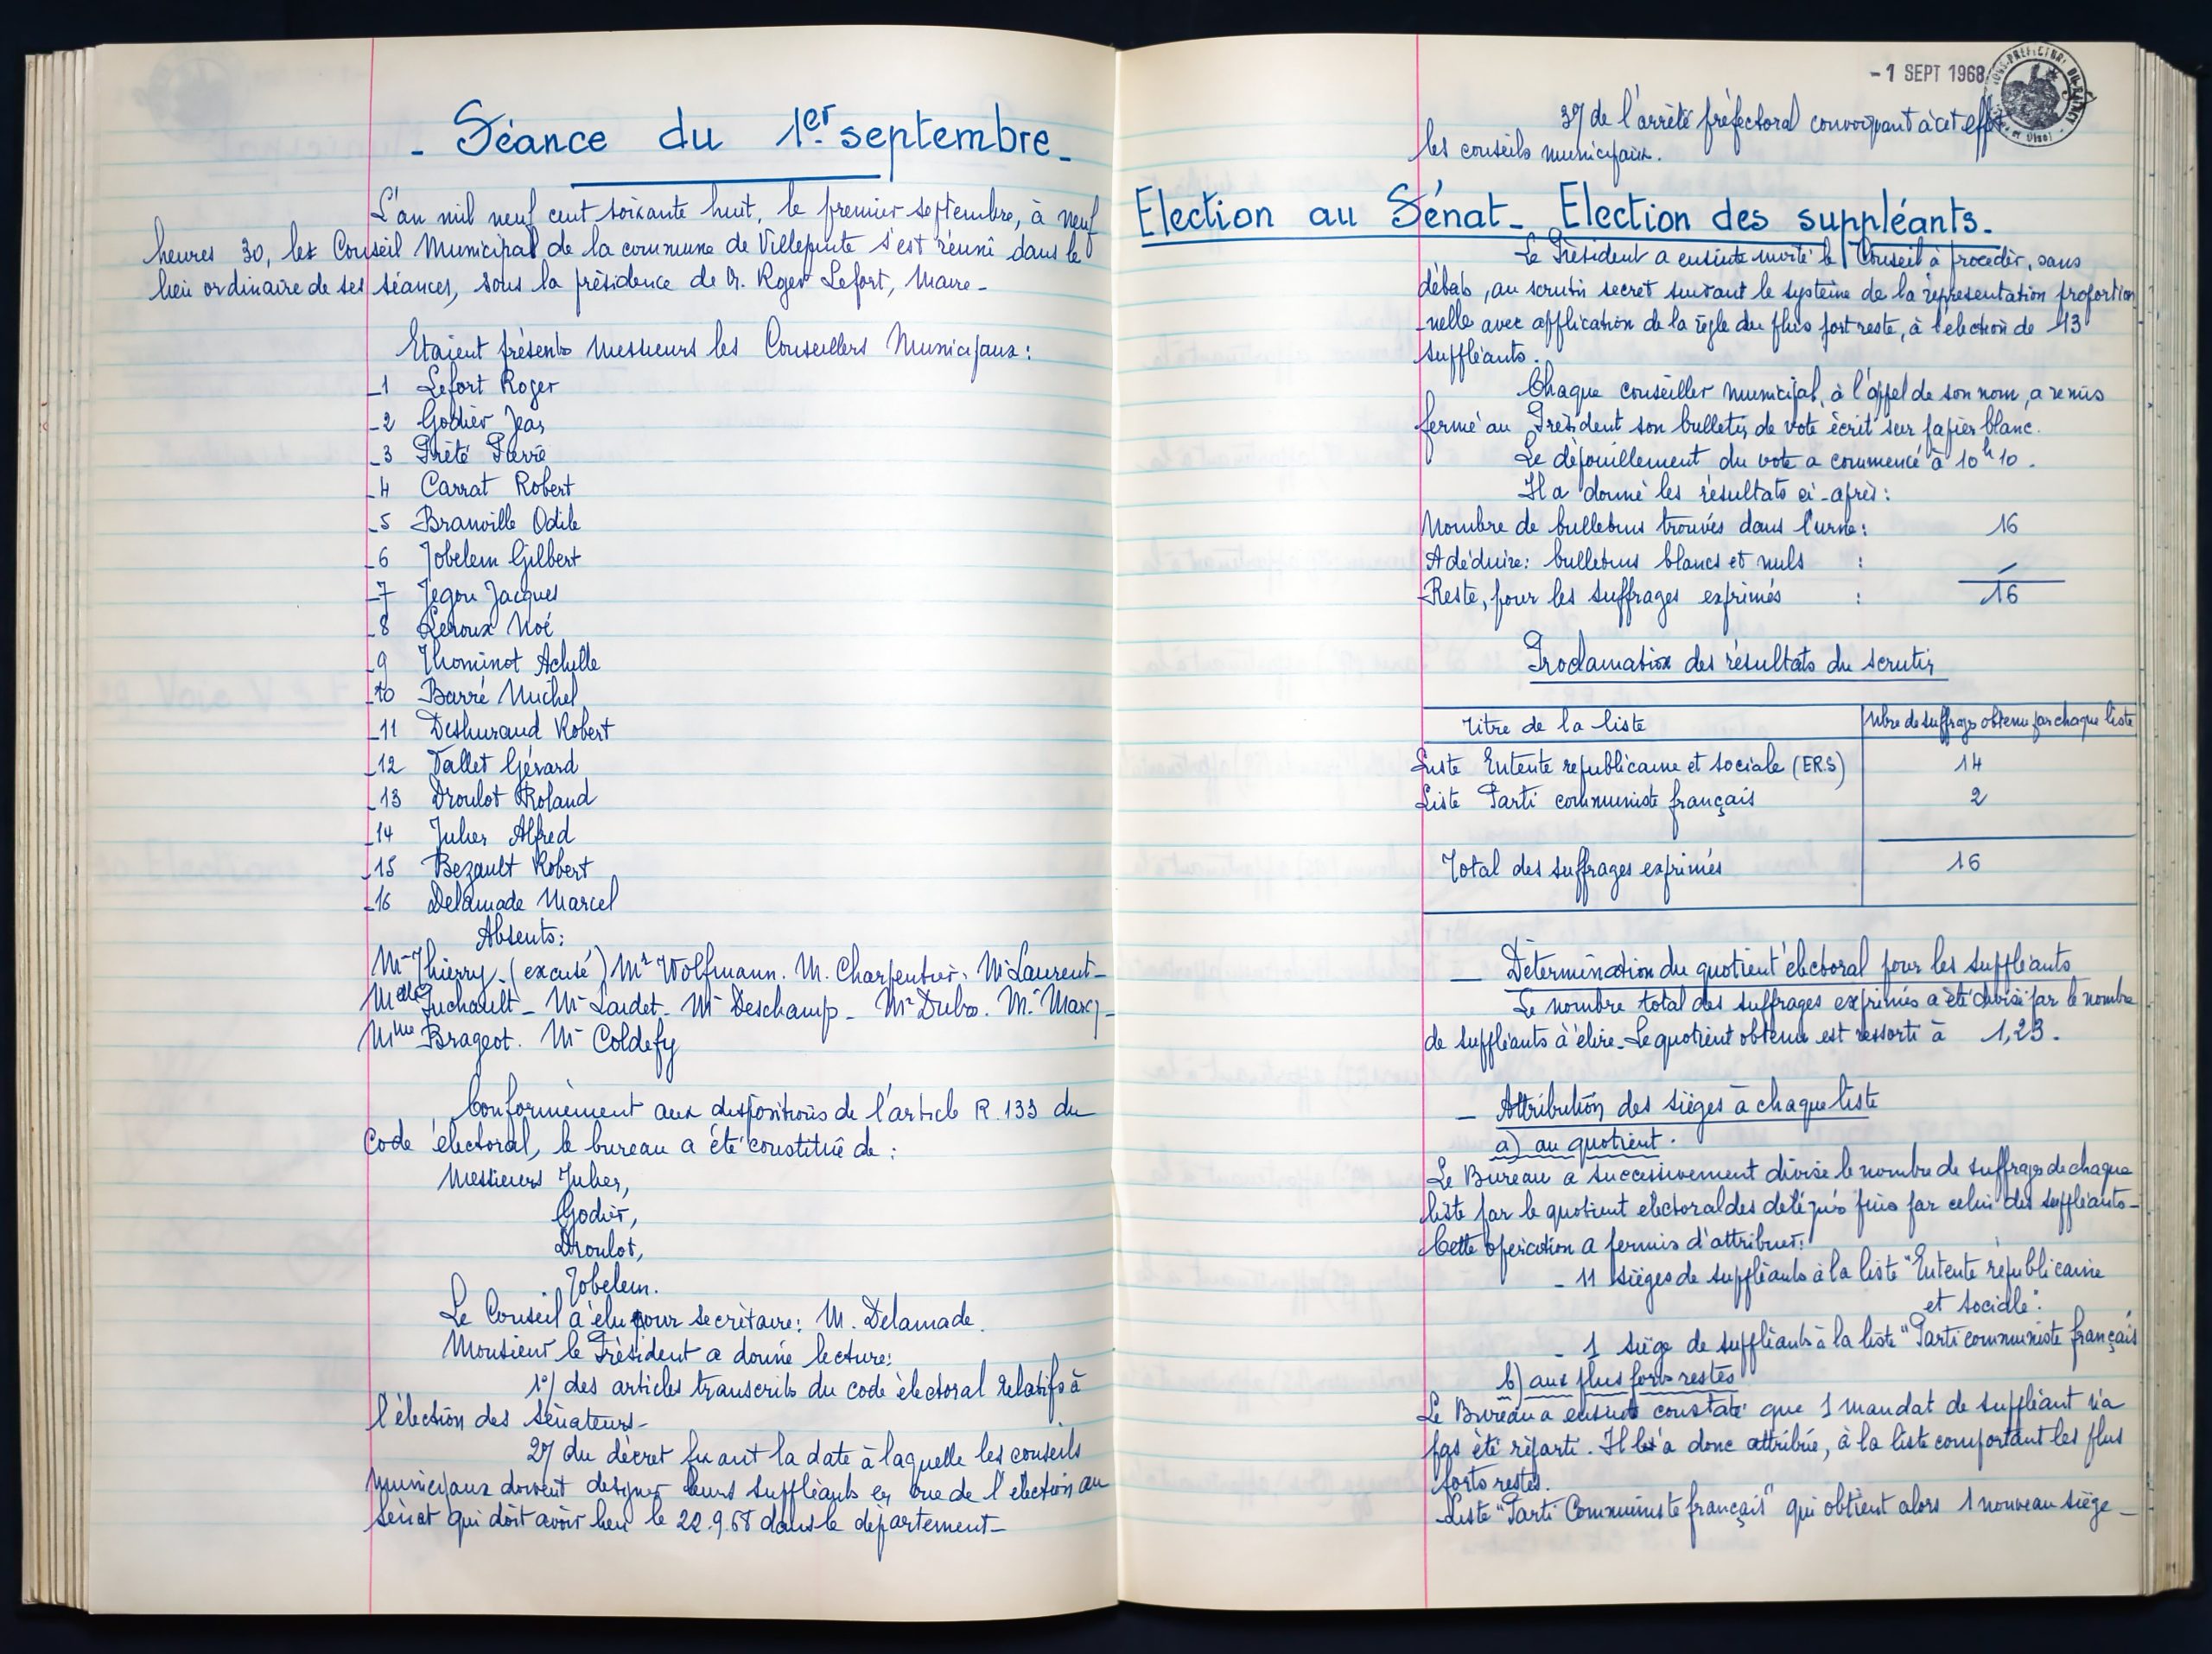 - Séance du 1er septembre -
L'an mil neuf cent soixante huit, le premier septembre, à neuf
heures 30, les Conseil Municipal de la commune de Villepinte s'est réuni dans le
lieu ordinaire de ses séances, sous la présidence de M. Roger Lefort, Maire -
Etaient présents Messieurs les Conseillers Municipaux :
_1 Lefort Roger
_2 Godier Jean
_3 Prêté Pierre
_4 Carrat Robert
_5 Branville Odile
_6 Jobelem Gilbert
_7 Jegou Jacques
_8 Leroux Noé
_9 Thominot Achille
_10 Barré Michel
_11 Deshuraud Robert
_12 Tallet Gérard
_13 Droulot Roland
_14 Juher Alfred
_15 Bezault Robert
_16 Delamade Marcel
Absents :
Mr Thierry (excusé) Mr Wolfmann. M. Charpentier. Mr Laurent -
Melle Guchault - Mr Laidet - Mr Deschamp - Mr Dubo. Mr Marcy -
Mme Brageot. Mr Coldefy
Conformément aux dispositions de l'article R.133 du
Code électoral, le bureau a été constitué de :
Messieurs Juher,
Godier,
Droulot,
Jobelem.
Le Conseil a élu pour secrétaire : M. Delamade.
Monsieur le Président a donné lecture :
1°/ des articles transcrits du code électoral relatifs à
l'élection des Sénateurs -
2°/ du décret fixant la date à laquelle les conseils
municipaux doivent designer leurs suppléants en vue de l'élection au
Sénat qui doit avoir lieu le 22.9.68 dans le département -
- 1 SEPT 1968
SOUS-PRÉFECTURE DU RAINCY
3°/ de l'arrêté préfectoral convoquant à cet effet
les conseils municipaux.
Election au Sénat - Election des suppléants -
Le Président a ensuite invité le Conseil à procéder, sans
débats, au scrutin secret suivant le système de la représentation proportion
-nelle avec application de la règle du plus fort reste, à l'élection de 13
suppléants.
Chaque conseiller municipal, à l'appel de son nom, a remis
fermé au Président son bulletin de vote écrit sur papier blanc.
Le dépouillement du vote a commencé à 10h10.
Il a donné les résultats ci-après :
Nombre de bulletins trouvés dans l'urne : 16
A déduire : bulletins blancs et nuls : -
Reste, pour les suffrages exprimés : 16
Proclamation des résultats du scrutin
Titre de la liste Nbre de suffrages obtenu par chaque liste
Liste Entente republicaine et sociale (ERS) 14
Liste Parti communiste français 2
Total des suffrages exprimés 16
_ Détermination du quotient électoral pour les suppléants
Le nombre total des suffrages exprimés a été divisé par le nombre
de suppléants à élire - Le quotient obtenu est ressorti à 1,23.
_ Attribution des sièges à chaque liste
a) au quotient.
Le Bureau a successivement divisé le nombre de suffrages de chaque
liste par le quotient electoral des délégués puis par celui des suppléants -
Cette opération a permis d'attribuer :
- 11 sièges de suppléants à la liste "Entente républicaine
et sociale".
- 1 siège de suppléants à la liste "Parti communiste français
b) aux plus forts restes
Le Bureau a ensuite constaté que 1 mandat de suppléant n'a
pas été réparti. Il les a donc attribué, à la liste comportant les plus
forts restes.
Liste "Parti Communiste français" qui obtient alors 1 nouveau siège -